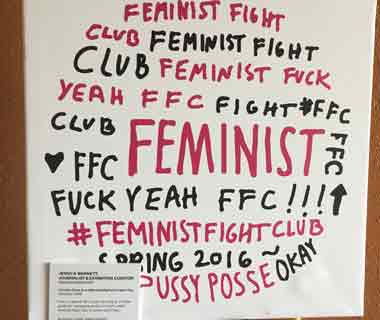 FEMINIST FIGHT
CLUB FEMINIST FIGHT
CLUB FEMINIST FUCK
YEAH FFC FIGHT #FFC
CLUB FEMINIST FFC
♥ FFC
FUCK YEAH FFC!!!
#FEMINISTFIGHTCLUB
SPRING 2016 ~ OKAY
PUSSY POSSE
JESSICA BENNETT,
JOURNALIST & EXHIBITION CURATOR